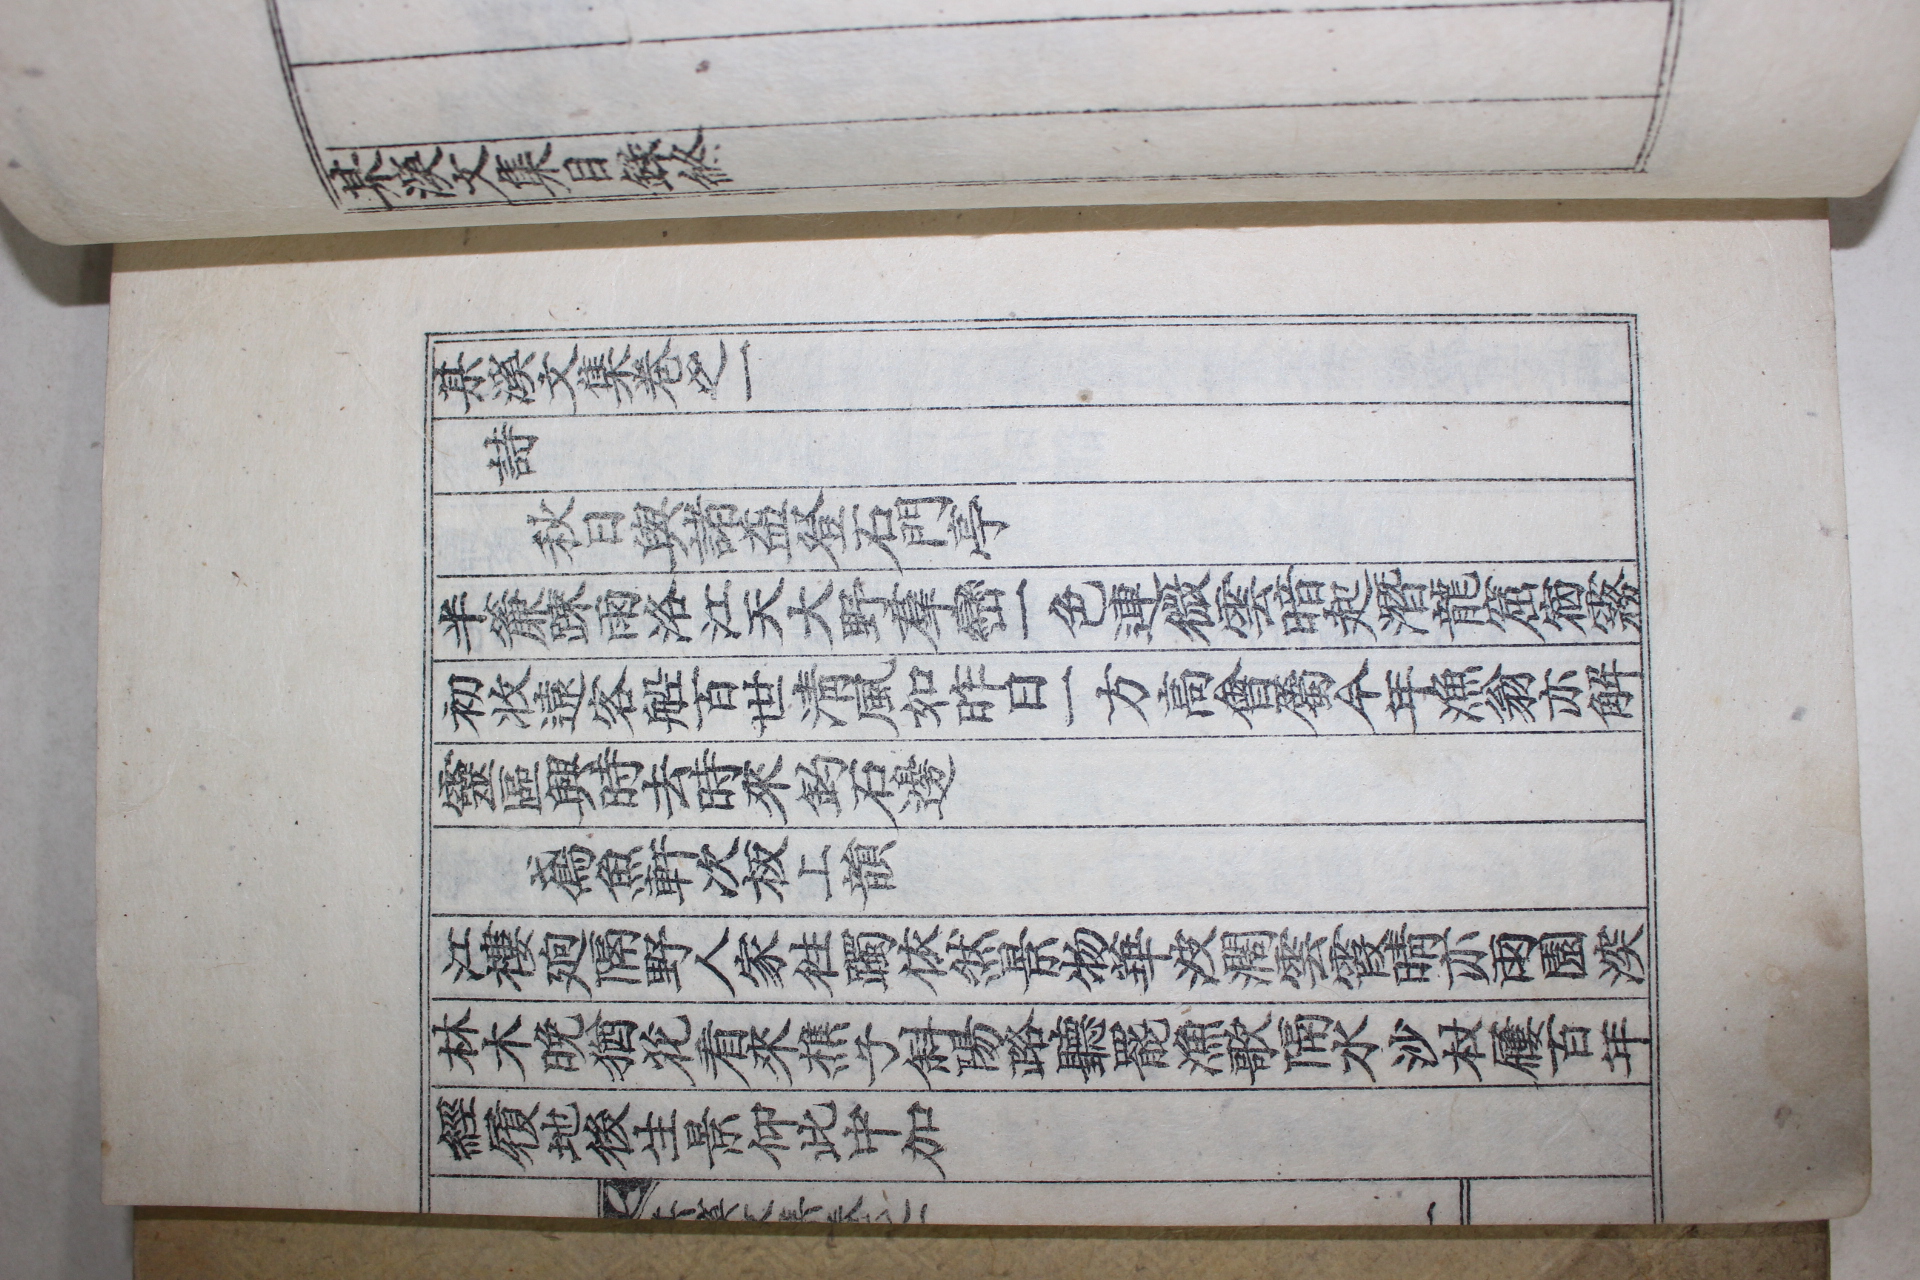 某溪文集目錄終
某溪文集卷之一
詩
秋日與諸益登石門亭
半簾踈雨洛江天大野羣巒一色連微雲暗起潛龍窟宿霧
初收遠客船百世淸風如昨日一方高會屬今年漁翁亦解
靈區興時去時來釣石邊
鳶魚軒次板上韻
江樓逈隔野人家徃躅依然景物華波濶雲霞晴亦雨園深
林木晩猶花看來樵子斜陽路聽罷漁歌隔水沙杖屨百年
經履地後生景仰此中加